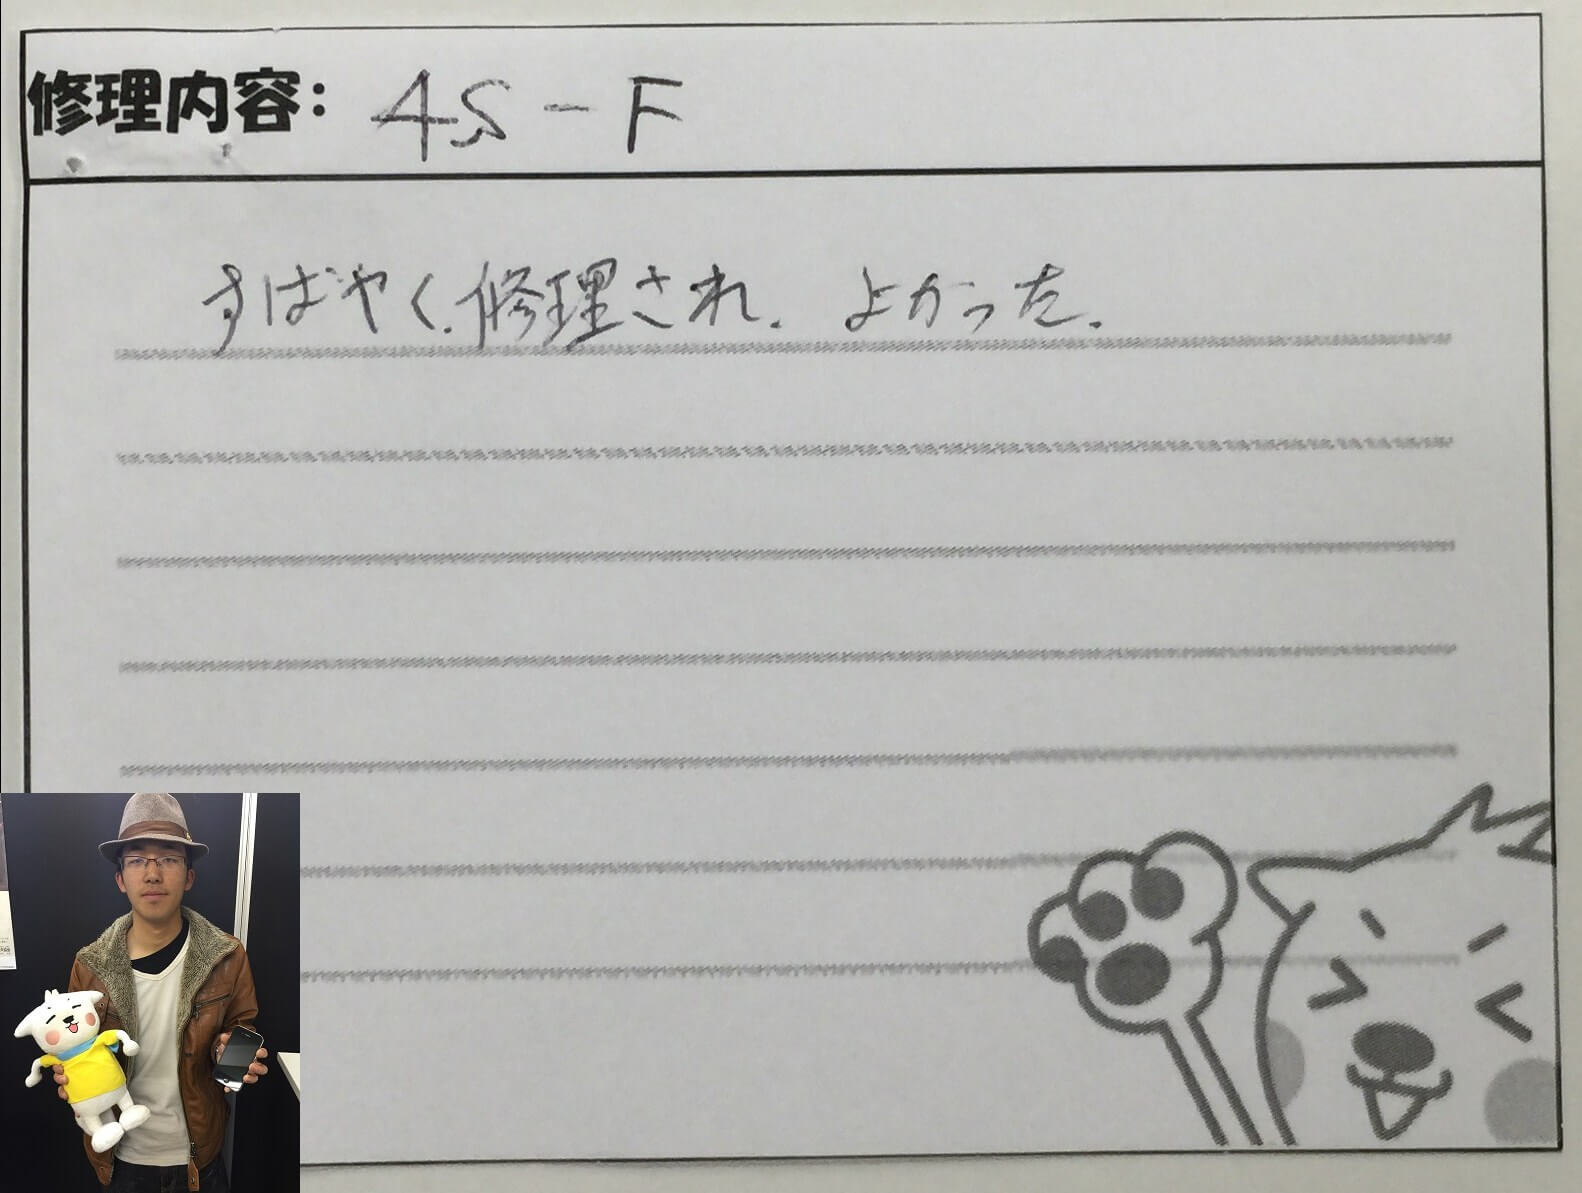 修理内容: 4S-F
すばやく.修理され. よかった.